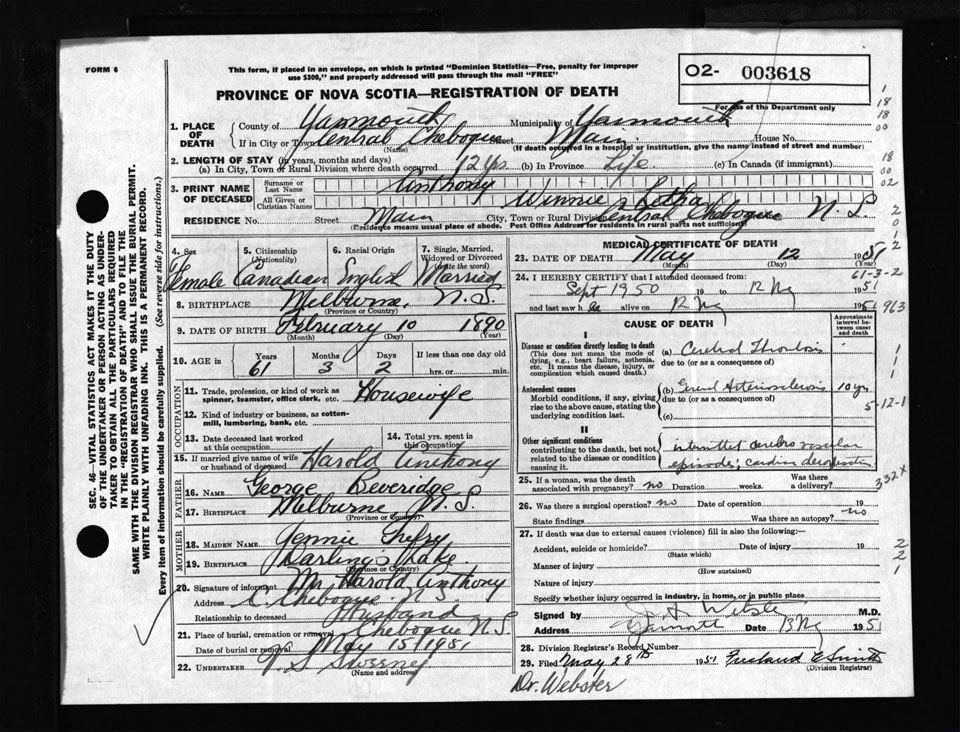 FORM 6
This form, if placed in an envelope, on which is printed "Dominion Statistics—Free, penalty for improper
use $300," and properly addressed will pass through the mail "FREE"
O2- 003618
For use of the Department only
PROVINCE OF NOVA SCOTIA—REGISTRATION OF DEATH
1. PLACE OF DEATH { County of Yarmouth Municipality of Yarmouth
If in City or Town Central Chebogue Street Main House No.
(Name) (If death occurred in a hospital or institution, give the name instead of street and number)
2. LENGTH OF STAY (in years, months and days)
(a) In City, Town or Rural Division where death occurred 12 Yrs. (b) In Province Life (c) In Canada (if immigrant)
3. PRINT NAME OF DECEASED { Surname or Last Name Anthony
All Given or Christian Names Winnie Letha
RESIDENCE No. Street Main City, Town or Rural Division Central Chebogue N.S.
(Residence means usual place of abode. Post Office Address for residents in rural parts not sufficient)
4. Sex Female
5. Citizenship (Nationality) Canadian
6. Racial Origin English
7. Single, Married, Widowed or Divorced (write the word) Married
8. BIRTHPLACE Melburne, N.S.
(Province or Country)
9. DATE OF BIRTH February 10 1890
(Month) (Day) (Year)
10. AGE in Years 61 Months 3 Days 2 If less than one day old
hrs. or min.
OCCUPATION
11. Trade, profession, or kind of work as spinner, teamster, office clerk, etc. Housewife
12. Kind of industry or business, as cotton-mill, lumbering, bank, etc.
13. Date deceased last worked at this occupation
14. Total yrs. spent in this occupation
15. If married give name of wife or husband of deceased Harold Anthony
FATHER
16. NAME George Beveridge
17. BIRTHPLACE Melburne N.S.
(Province or Country)
MOTHER
18. MAIDEN NAME Jennie Trefry
19. BIRTHPLACE Darling's Lake
(Province or Country)
20. Signature of informant Mr Harold Anthony
Address C. Chebogue N.S.
Relationship to deceased Husband
21. Place of burial, cremation or removal Chebogue N.S.
Date of burial or removal May 15/1951
22. UNDERTAKER Sweeney
(Name and address)
MEDICAL CERTIFICATE OF DEATH
23. DATE OF DEATH May 12 1951
(Month) (Day) (Year)
24. I HEREBY CERTIFY that I attended deceased from
Sept 1950 19 to 12 My 1951
and last saw h alive on 12 My 1951
CAUSE OF DEATH
Approximate interval between onset and death
I
Disease or condition directly leading to death
(This does not mean the mode of dying, e.g., heart failure, asthenia, etc. It means the disease, injury, or complication which caused death.)
(a) Cerebral Thrombosis
due to (or as a consequence of)
Antecedent causes
Morbid conditions, if any, giving rise to the above cause, stating the underlying condition last.
(b) General Arteriosclerosis 10 yrs
due to (or as a consequence of)
(c)
II
Other significant conditions
contributing to the death, but not related to the disease or condition causing it.
intermittent cerebro vascular
episode; cardiac
25. If a woman, was the death associated with pregnancy? no Duration weeks. Was there a delivery?
26. Was there a surgical operation? no Date of operation 19
State findings Was there an autopsy? no
27. If death was due to external causes (violence) fill in also the following:—
Accident, suicide or homicide? Date of injury 19
(State which)
Manner of injury
(How sustained)
Nature of injury
Specify whether injury occurred in industry, in home, or in public place
Signed by M.D.
Address Yarmouth Date 13 My 1951
28. Division Registrar's Record Number
29. Filed May 28th 1951 Freeland E Smith
(Division Registrar)
Dr. Webster
SEC. 46—VITAL STATISTICS ACT MAKES IT THE DUTY
OF THE UNDERTAKER OR PERSON ACTING AS UNDER-
TAKER TO OBTAIN ALL THE PARTICULARS REQUIRED
IN THE "REGISTRATION OF DEATH" AND TO FILE THE
SAME WITH THE DIVISION REGISTRAR WHO SHALL ISSUE THE BURIAL PERMIT.
WRITE PLAINLY WITH UNFADING INK. THIS IS A PERMANENT RECORD.
Every item of information should be carefully supplied. (See reverse side for instructions.)
1
18
18
00
18
00
02
2
0
1
2
61-3-2
963
1
1
1
5-12-1
332X
2
2
1